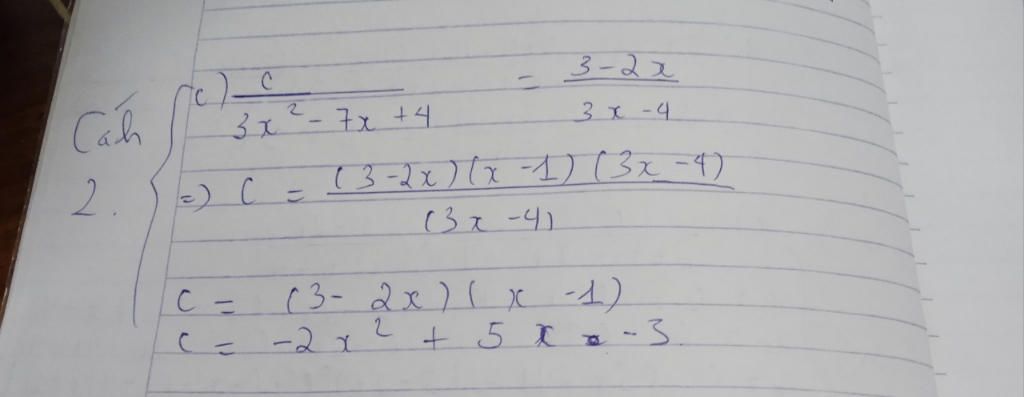 Cách 2.
c) C / (3x² - 7x + 4) = (3 - 2x) / (3x - 4)
=> C = (3 - 2x)(x - 1)(3x - 4) / (3x - 4)
C = (3 - 2x)(x - 1)
C = -2x² + 5x - 3.